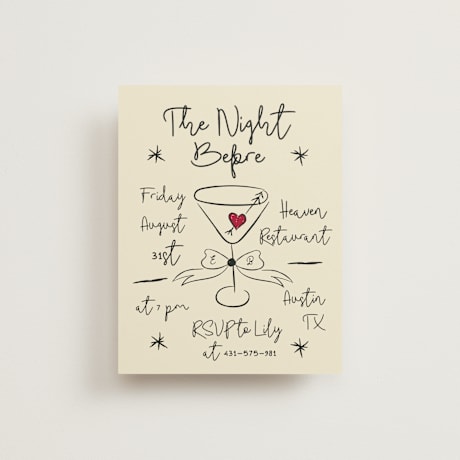 The Night
Before
Friday
August
31st
Heaven
Restaurant
E D
at 7 pm
Austin
TX
RSVP to Lily
at 431-575-981